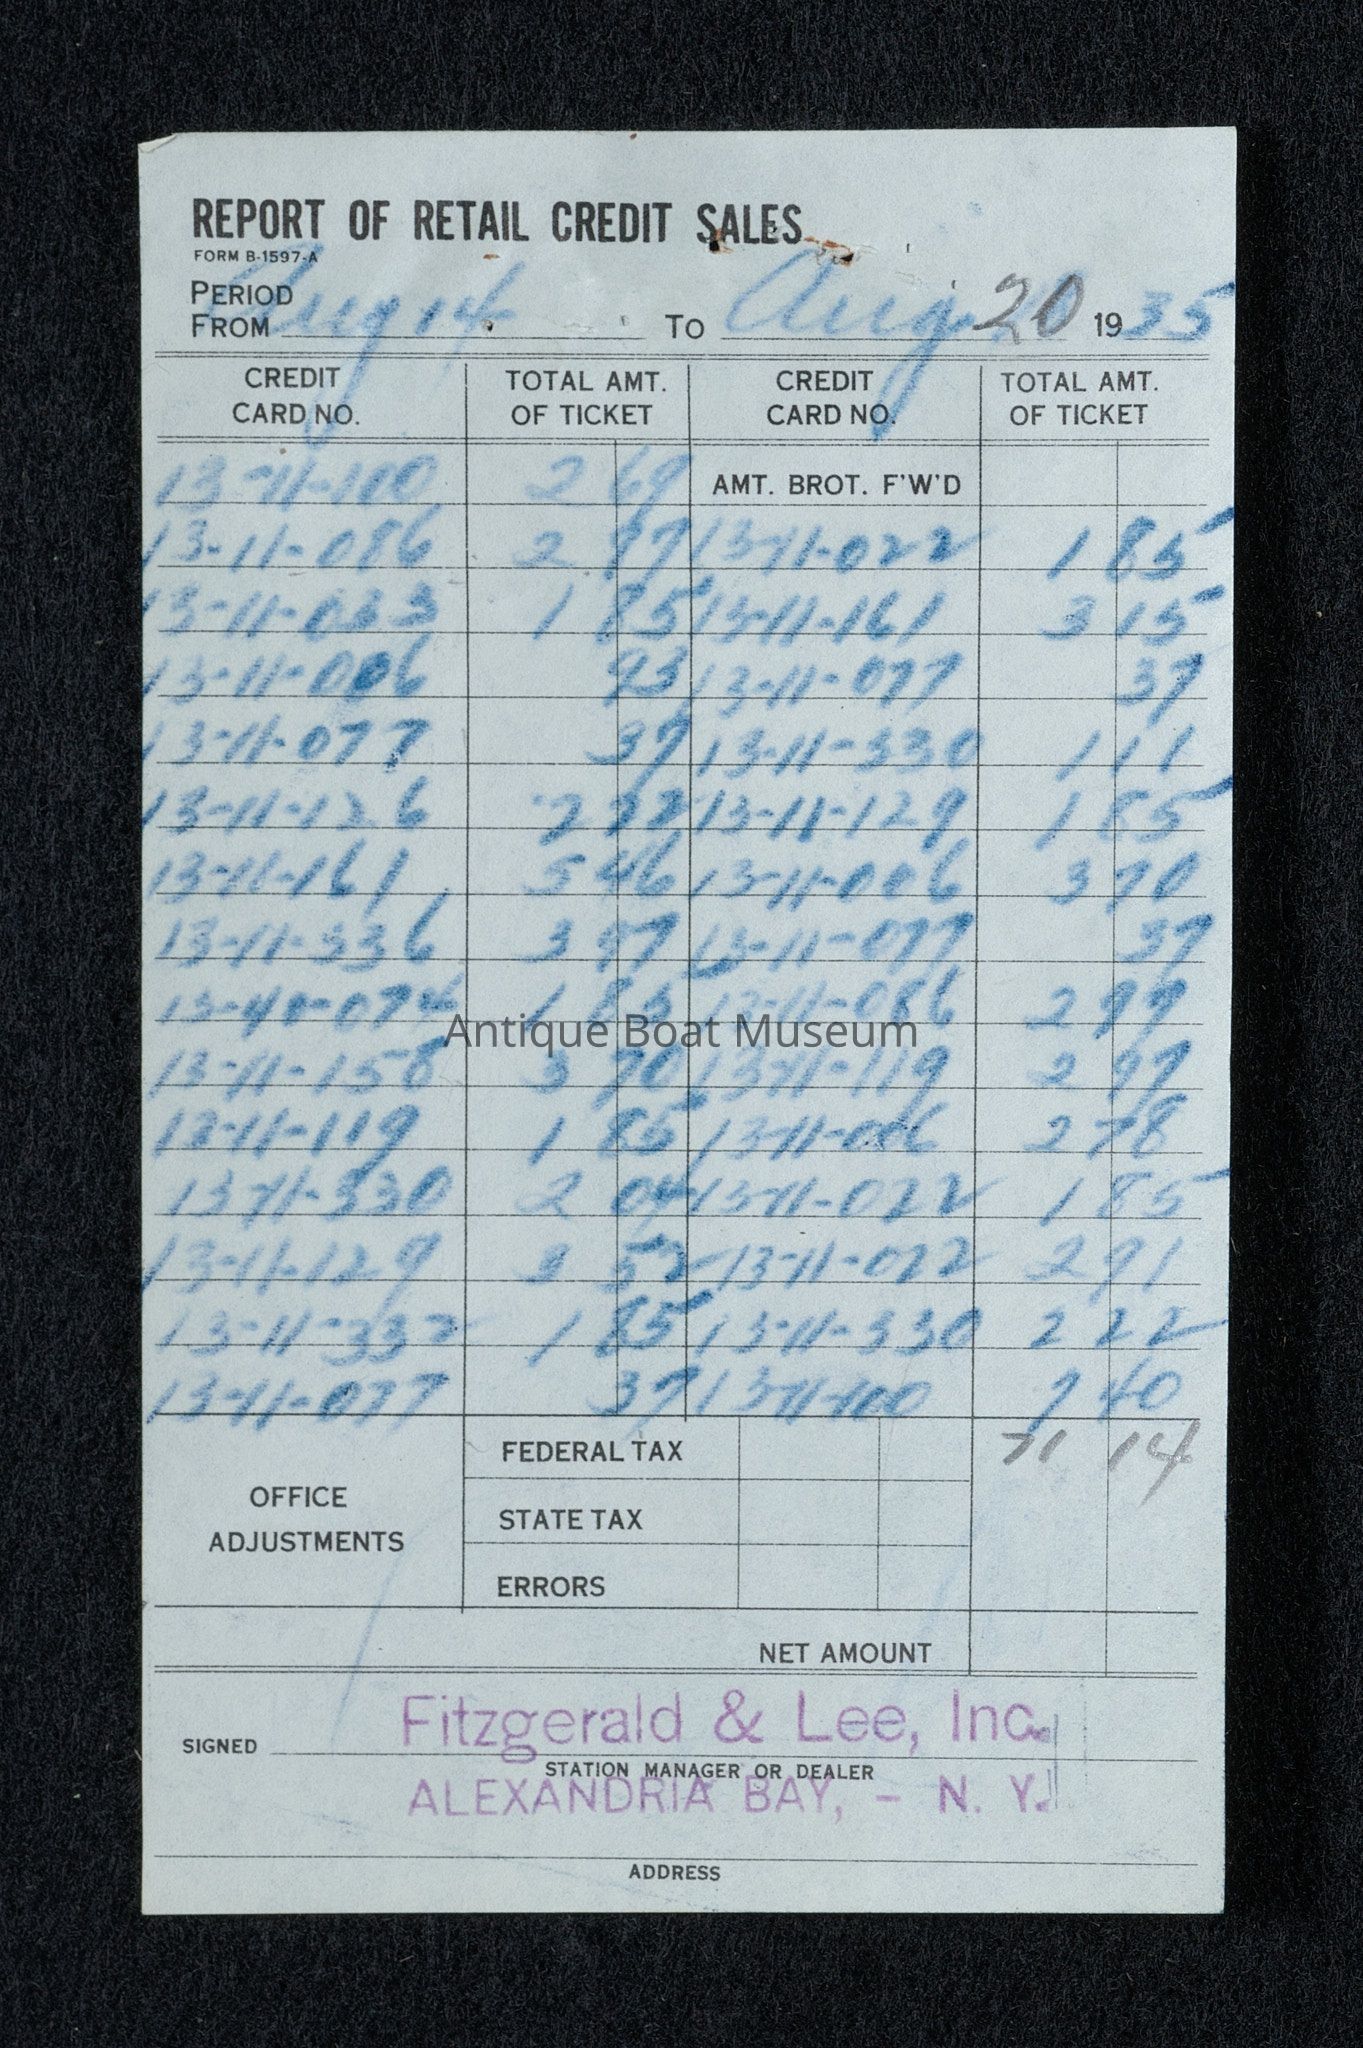 REPORT OF RETAIL CREDIT SALES
FORM B-1597-A
PERIOD
FROM Aug 14 TO Aug. 20 1935
CREDIT CARD NO. TOTAL AMT. OF TICKET CREDIT CARD NO. TOTAL AMT. OF TICKET
13-11-100 2 69 AMT. BROT. F'W'D
13-11-086 2 13-11-022 1 85
13-11-033 1 85 13-11-161 3 15
13-11-006 93 13-11-077 37
13-11-077 37 13-11-330 1 11
13-11-126 2 22 13-11-129 1 85
13-11-161 5 46 13-11-006 3 70
13-11-336 3 13-11-077 37
1 85 13-11-086 2 99
Antique Boat Museum
13-11-158 3 70 13-11-119 2 97
13-11-119 1 85 13-11-006 2 78
13-11-330 2 04 13-11-022 1 85
13-11-129 3 52 13-11-022 2 91
13-11-332 1 85 13-11-330 2 22
13-11-077 37 13-11-100 7 40
71 14
OFFICE ADJUSTMENTS
FEDERAL TAX
STATE TAX
ERRORS
NET AMOUNT
Fitzgerald & Lee, Inc.
SIGNED
STATION MANAGER OR DEALER
ALEXANDRIA BAY, - N. Y.
ADDRESS